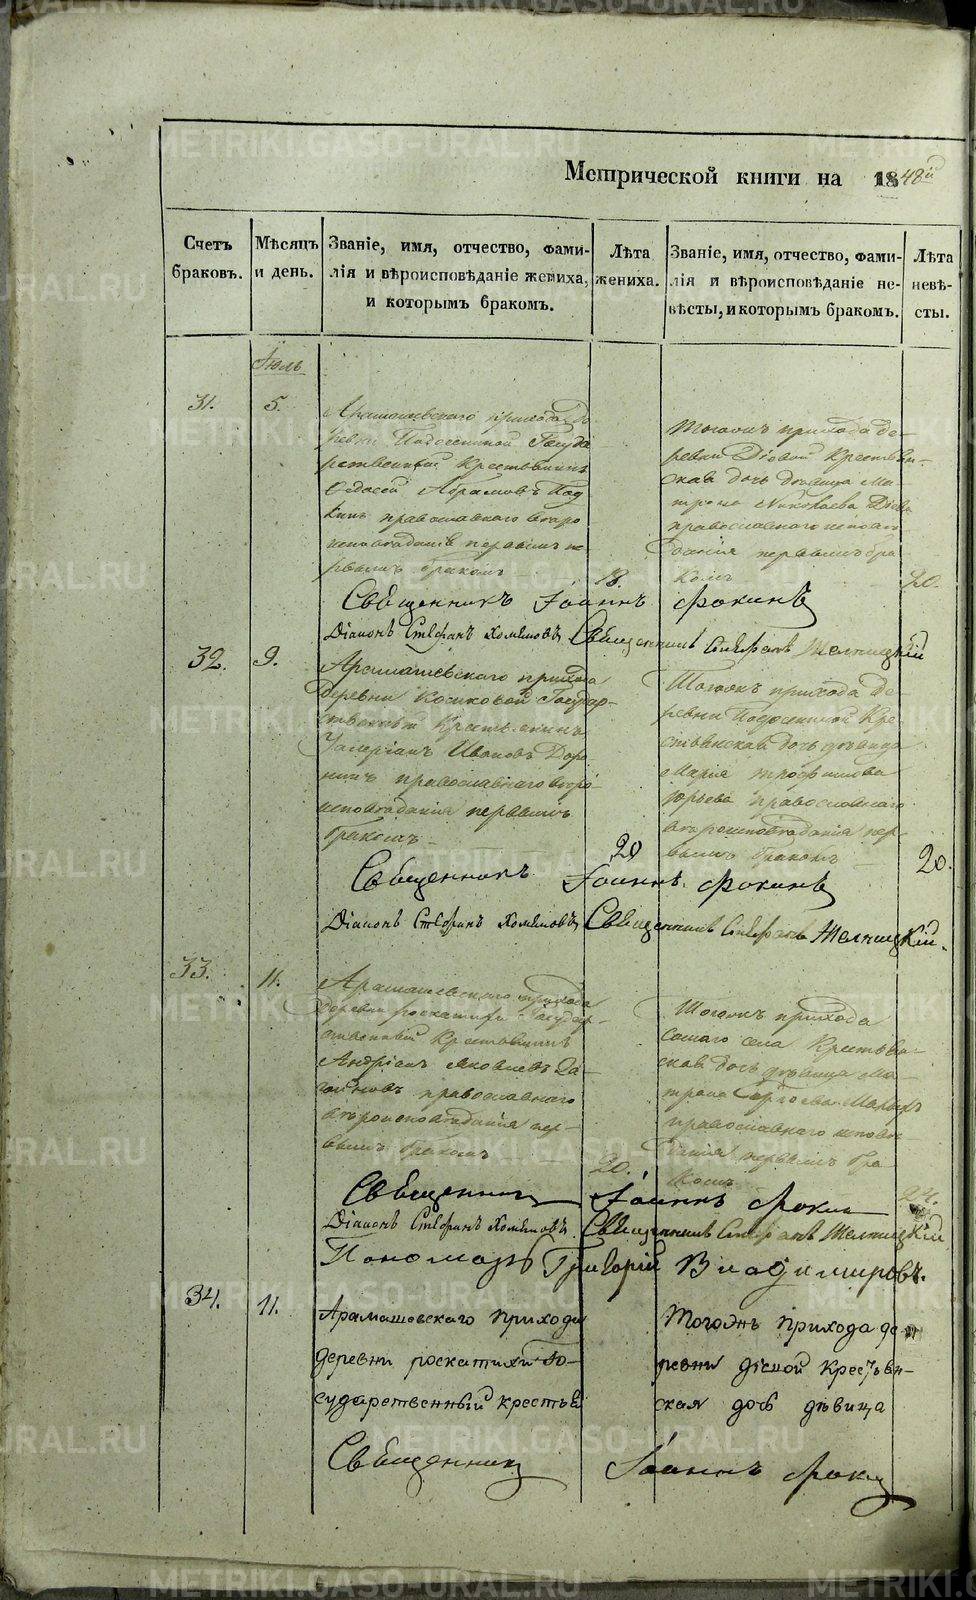 Метрической книги на 1848й
Счетъ браковъ.
Мѣсяцъ и день.
Званіе, имя, отчество, фами-
лія и вѣроисповѣданіе жениха,
и которымъ бракомъ.
Лѣта жениха.
Званіе, имя, отчество, фами-
лія и вѣроисповѣданіе не-
вѣсты, и которымъ бракомъ.
Лѣта невѣ-
сты.
Іюль
31.
5.
Арамашевскаго прихода де
ревни Государ
рственный Крестьянинъ
Ѳедосей Абрамовъ Под
кинъ православнаго вѣро
исповѣданія первымъ пе
рвымъ бракомъ
18.
Тогожъ прихода де-
ревни Діевой Крестьян-
ская дочь дѣвица Ма-
трона Николаева Діева
православнаго исповѣ
данія первымъ бра
комъ
20.
Священникъ Іоаннъ Фокинъ
Діаконъ Стефанъ Хомяковъ Священникъ Стефанъ
32.
9.
Арамашевскаго прихода
деревни Косиковой Государ-
ственный Крестьянинъ
Валеріанъ Ивановъ Доро
нинъ православнаго вѣро
исповѣданія первымъ
бракомъ
20
Тогожъ прихода де-
ревни Кре
стьянская дочь дѣвица
Марія Трофимова
Юрьева православнаго
вѣроисповѣданія пер-
вымъ бракомъ
20.
Священникъ Іоаннъ Фокинъ
Діаконъ Стефанъ Хомяковъ Священникъ Стефанъ
33.
11.
Арамашевскаго прихода
деревни роскатихи Государ-
ственный Крестьянинъ
Андріанъ Яковлевъ
православнаго
вѣроисповѣданія пер-
вымъ бракомъ
20.
Тогожъ прихода
самаго села Крестьян-
ская дочь дѣвица Ма-
трона Сергѣева
православнаго исповѣ
данія первымъ бра
комъ
24.
Священникъ Іоаннъ Фокинъ
Діаконъ Стефанъ Хомяковъ Священникъ Стефанъ
Пономарь Григорій Владимировъ.
34.
11.
Арамашевскаго прихода
деревни роскатихи Го-
сударственный крестья
Тогожъ прихода де
ревни діевой крестьян-
ская дочь дѣвица
Священникъ Іоаннъ Фокинъ
METRIKI.GASO-URAL.RU